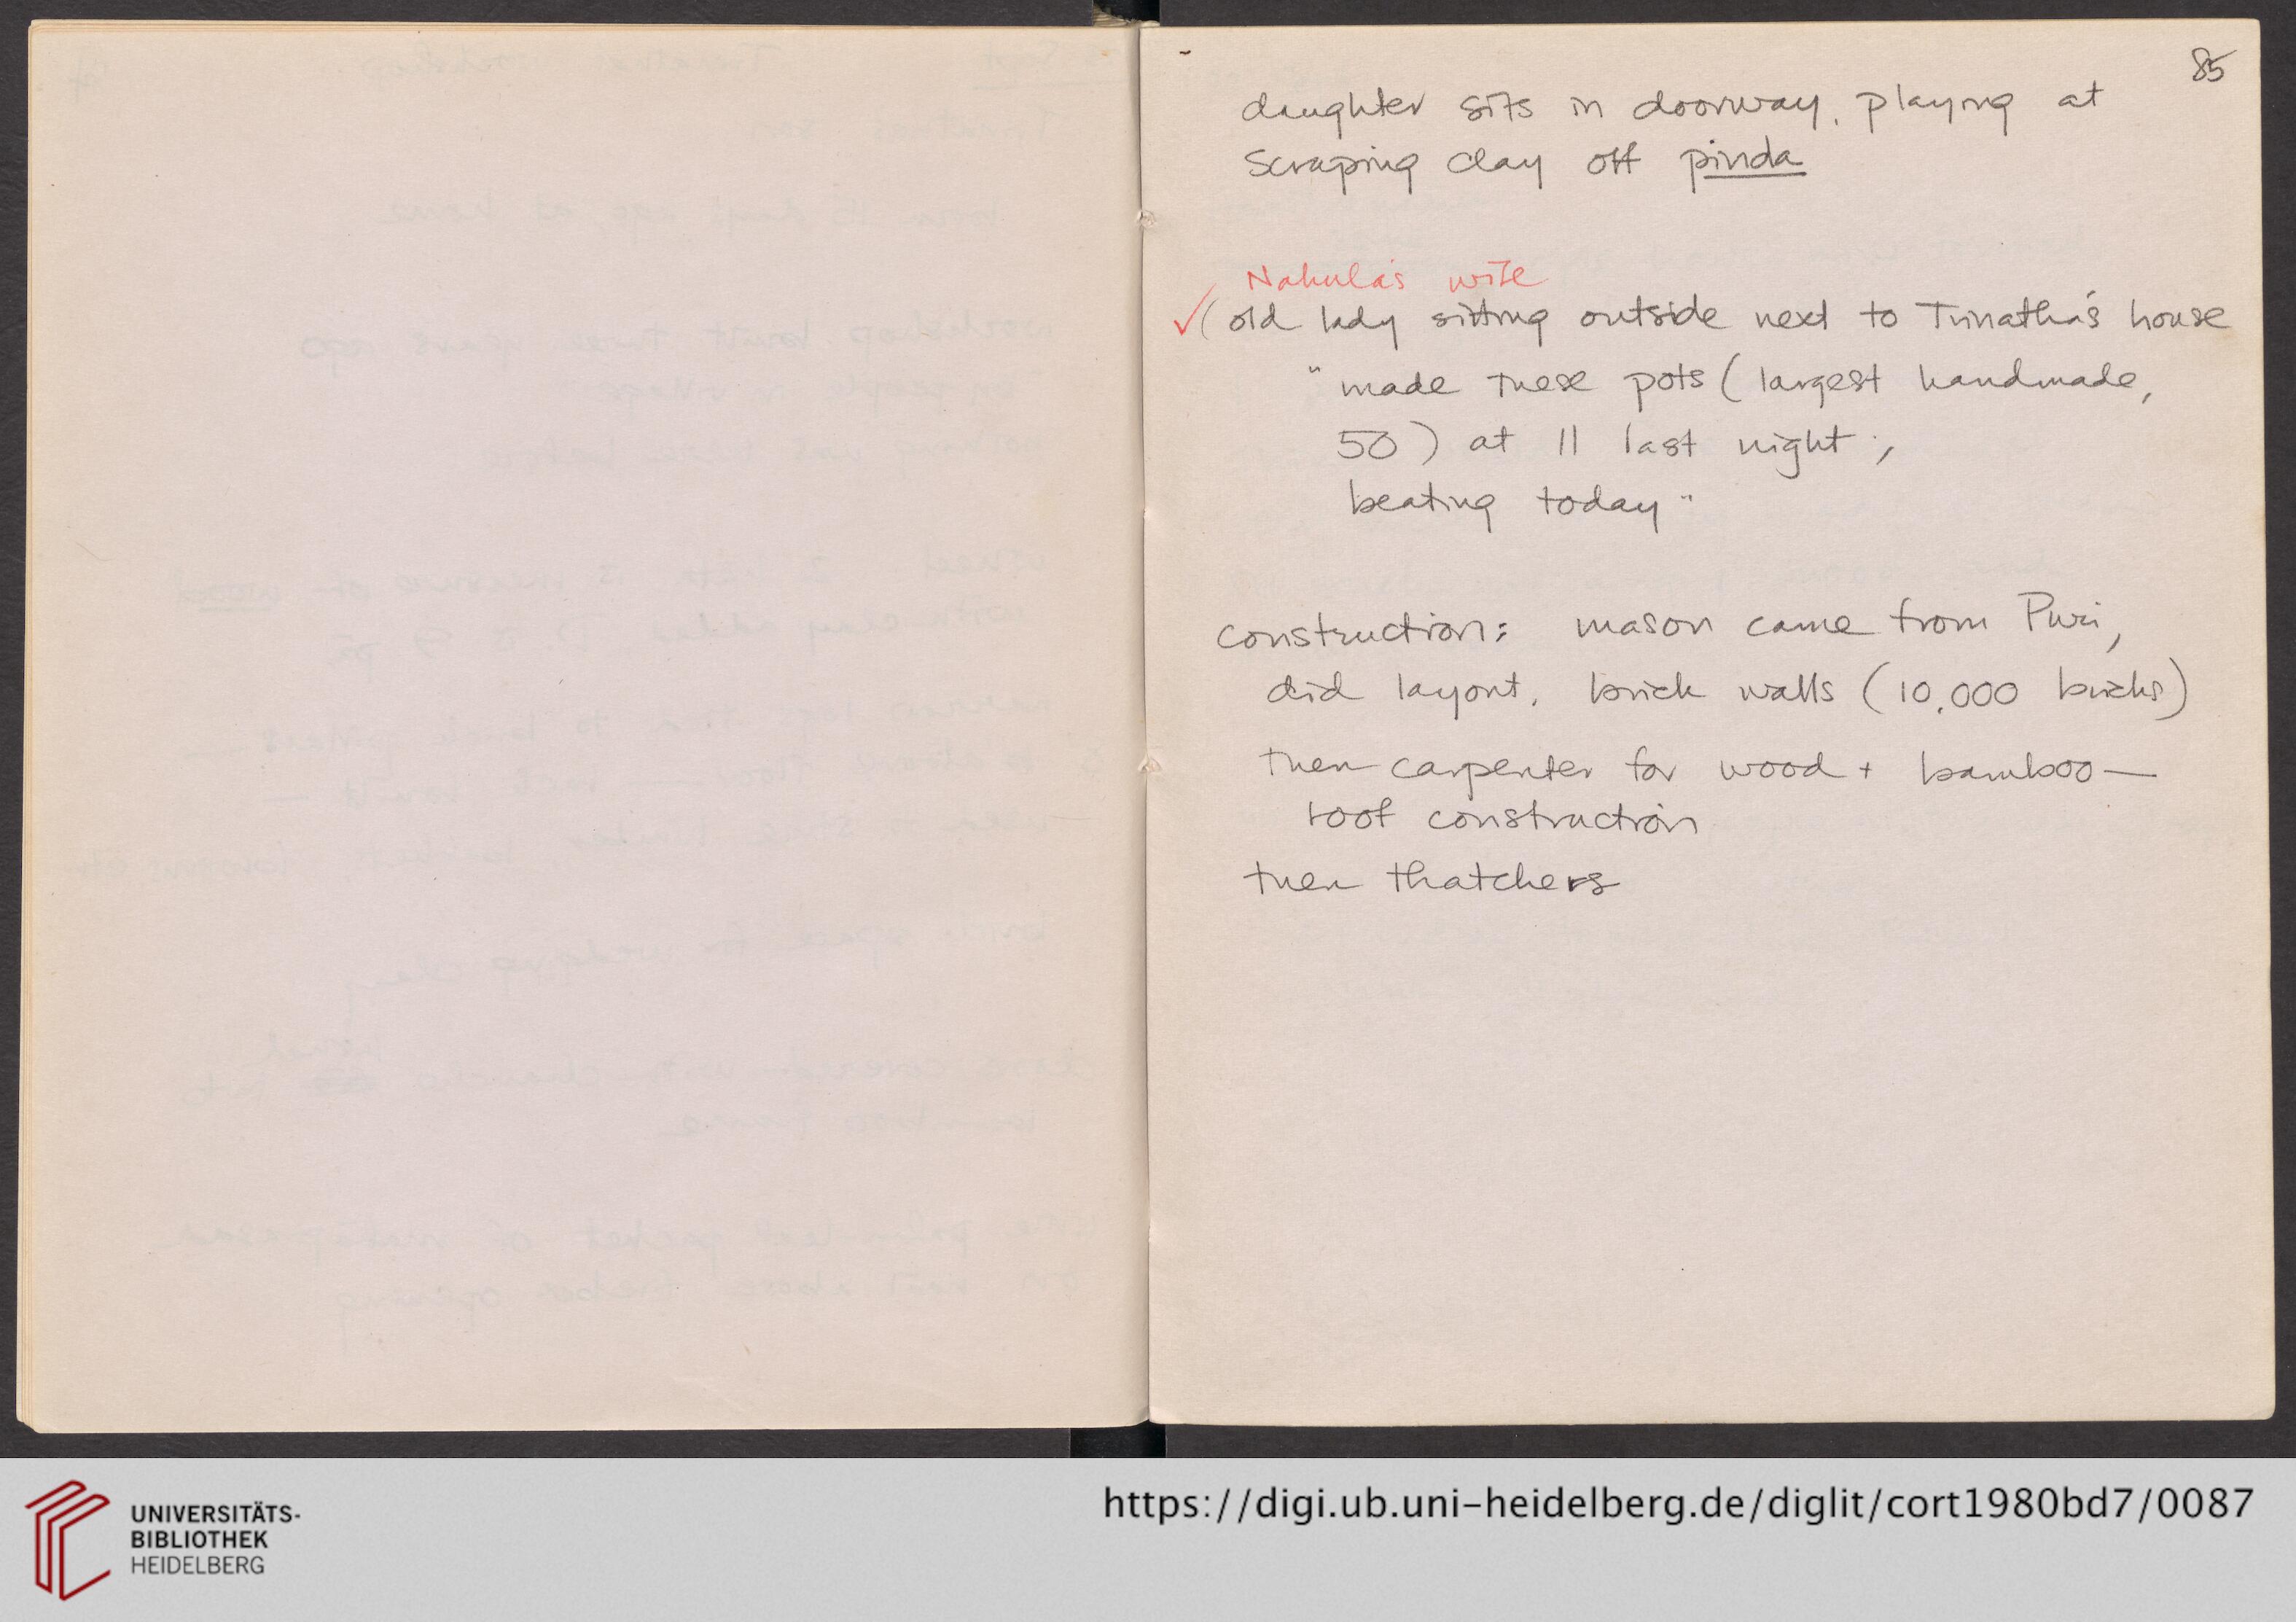 85
daughter sits in doorway, playing at
scraping clay off pinda
Nakula's wife
✓ (old lady sitting outside next to Trinatha's house
"made these pots (largest handmade,
50) at 11 last night;
beating today"
construction: mason came from Puri,
did layout, brick walls (10,000 bricks)
then carpenter for wood + bamboo —
roof construction
then thatchers
UNIVERSITÄTS-
BIBLIOTHEK
HEIDELBERG
https://digi.ub.uni-heidelberg.de/diglit/cort1980bd7/0087